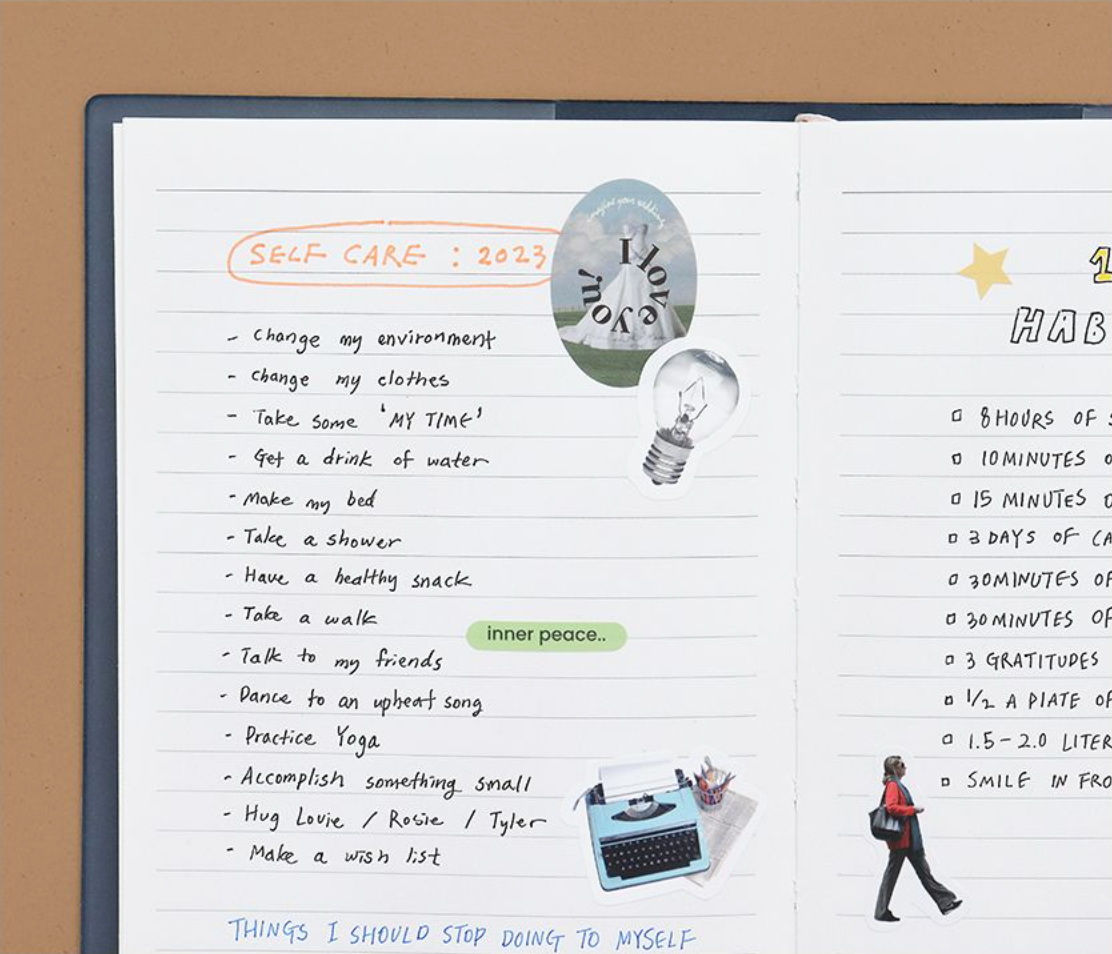 SELF CARE : 2023
imagine your wedding
I love you!
- Change my environment
- change my clothes
- Take some 'MY TIME'
- Get a drink of water
- Make my bed
- Take a shower
- Have a healthy snack
- Take a walk
inner peace..
- Talk to my friends
- Dance to an upbeat song
- Practice Yoga
- Accomplish something small
- Hug Louie / Rosie / Tyler
- Make a wish list
THINGS I SHOULD STOP DOING TO MYSELF
1
HAB
8 HOURS OF S
10 MINUTES O
15 MINUTES O
3 DAYS OF CA
30 MINUTES OF
30 MINUTES OF
3 GRATITUDES
1/2 A PLATE OF
1.5-2.0 LITER
SMILE IN FRO